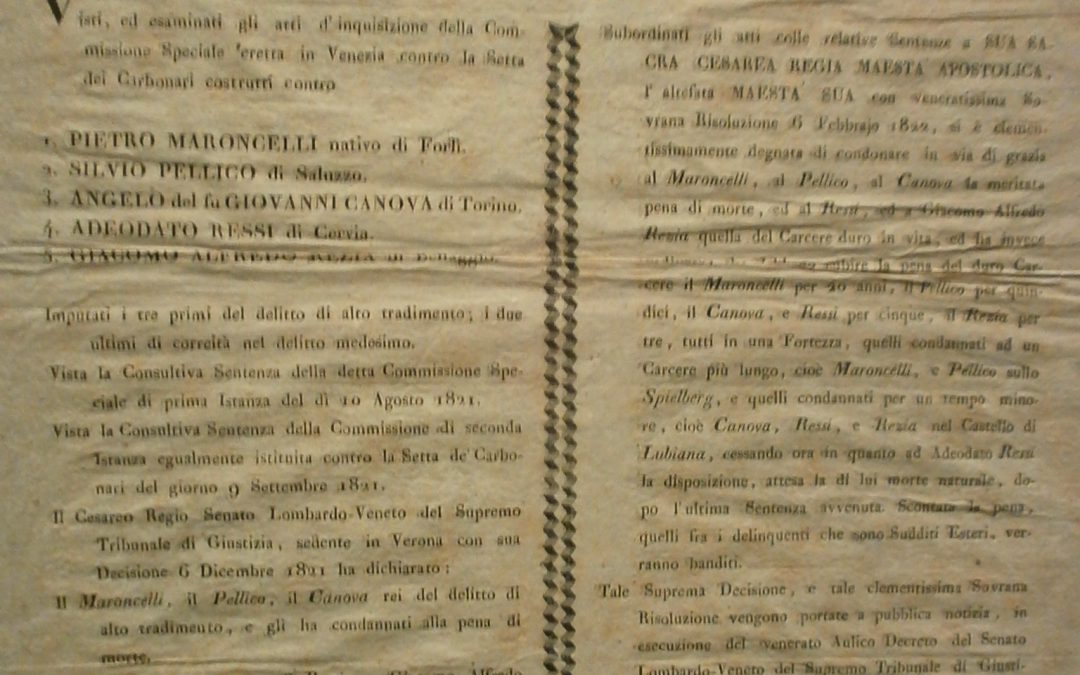 Visti, ed esaminati gli atti d'inquisizione della Com-
missione Speciale eretta in Venezia contro la Setta
dei Carbonari costrutti contro
1. PIETRO MARONCELLI nativo di Forlì.
2. SILVIO PELLICO di Saluzzo.
3. ANGELO del fu GIOVANNI CANOVA di Torino.
4. ADEODATO RESSI di Cervia.
5. GIACOMO ALFREDO REZIA di Bellaggio.
Imputati i tre primi del delitto di alto tradimento; i due
ultimi di correità nel delitto medesimo.
Vista la Consultiva Sentenza della detta Commissione Spe-
ciale di prima Istanza del dì 10 Agosto 1821.
Vista la Consultiva Sentenza della Commissione di seconda
Istanza egualmente istituita contro la Setta de' Carbo-
nari del giorno 9 Settembre 1821.
Il Cesareo Regio Senato Lombardo-Veneto del Supremo
Tribunale di Giustizia, sedente in Verona con sua
Decisione 6 Dicembre 1821 ha dichiarato:
Il Maroncelli, il Pellico, il Canova rei del delitto di
alto tradimento, e gli ha condannati alla pena di
morte.
Alfredo
Subordinati gli atti colle relative Sentenze a SUA SA-
CRA CESAREA REGIA MAESTA' APOSTOLICA,
l' altefata MAESTA' SUA con veneratissima So-
vrana Risoluzione 6 Febbrajo 1822, si è clemen-
tissimamente degnata di condonare in via di grazia
al Maroncelli, al Pellico, al Canova la meritata
pena di morte, ed al Ressi, ed a Giacomo Alfredo
Rezia quella del Carcere duro in vita; ed ha invece
subire la pena del duro Car-
cere il Maroncelli per 20 anni, il Pellico per quin-
dici, il Canova, e Ressi per cinque, il Rezia per
tre, tutti in una Fortezza, quelli condannati ad un
Carcere più lungo, cioè Maroncelli, e Pellico sullo
Spielberg, e quelli condannati per un tempo mino-
re, cioè Canova, Ressi, e Rezia nel Castello di
Lubiana, cessando ora in quanto ad Adeodato Ressi
la disposizione, attesa la di lui morte naturale, do-
po l'ultima Sentenza avvenuta. Scontata la pena,
quelli fra i delinquenti che sono Sudditi Esteri, ver-
ranno banditi.
Tale Suprema Decisione, e tale clementissima Sovrana
Risoluzione vengono portate a pubblica notizia, in
esecuzione del venerato Aulico Decreto del Senato
Lombardo-Veneto del Supremo Tribunale di Giusti-